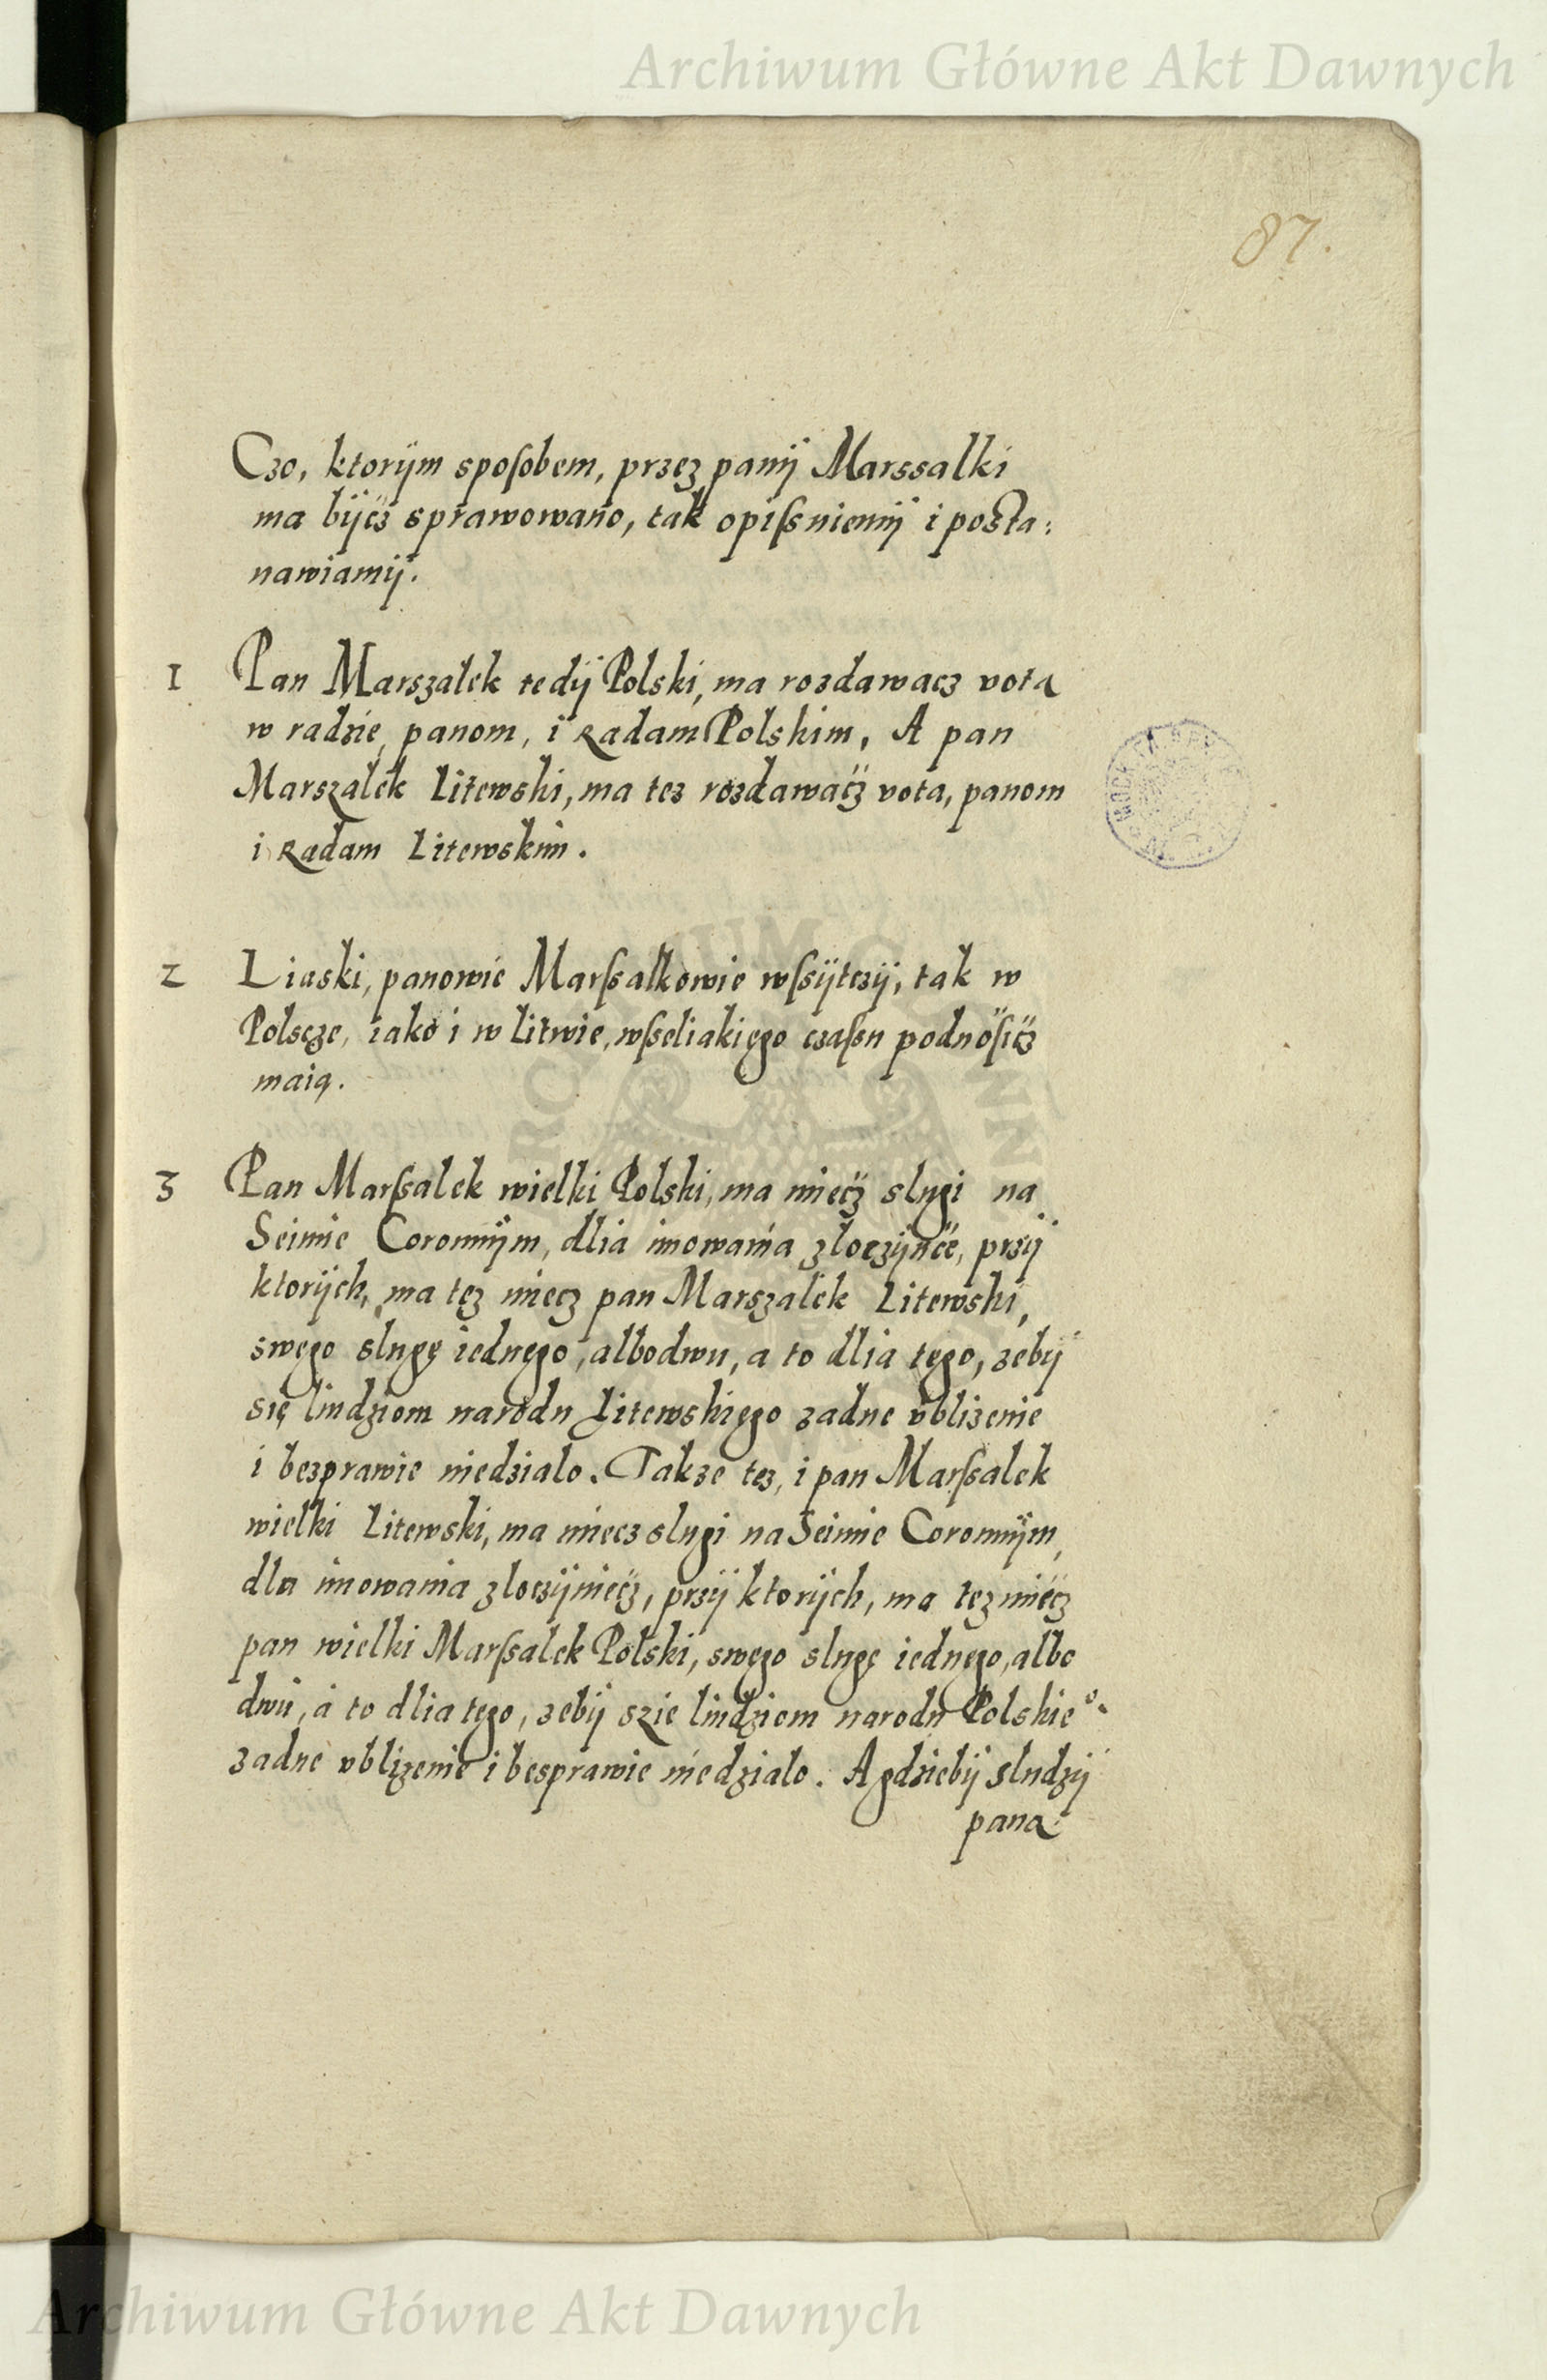 Archiwum Główne Akt Dawnych
87.
Czo, ktorijm sposobem, przez panij Marssalki
ma bijcz sprawowano, tak opissuiemij i posta:
nawiamij.
1 Pan Marszalek tedij Polski, ma rozdawacz vota
w radzie, panom, i Radam Polskim, A pan
Marszalek Litewski, ma tez rozdawacz vota, panom
i Radam Litewskim.
2 Liaski, panowie Marssalkowie wssijtczij, tak w
Polscze, iako i w Litwie, wsseliakiego czassu podnosicz
maią.
3 Pan Marssalek wielki Polski, ma miecz slugi na
Seimie Coronnijm, dlia imowania zloczijnce, przij
ktorijch, ma tez miecz pan Marszalek Litewski,
swego slugę iednego, albo dwu, a to dlia tego, zebij
się liudziom narodu Litewskiego zadne vblizenie
i bezprawie niedzialo. Takze tez, i pan Marssalek
wielki Litewski, ma miecz slugi na Seimie Coronnijm,
dla imowania zloczijniecz, przij ktorijch, ma tez miecz
pan wielki Marssalek Polski, swego slugę iednego, albo
dwu, a to dlia tego, zebij szie liudziom narodu Polskieº
zadne vblizenie i besprawie niedzialo. A gdziebij sludzij
pana
Archiwum Główne Akt Dawnych